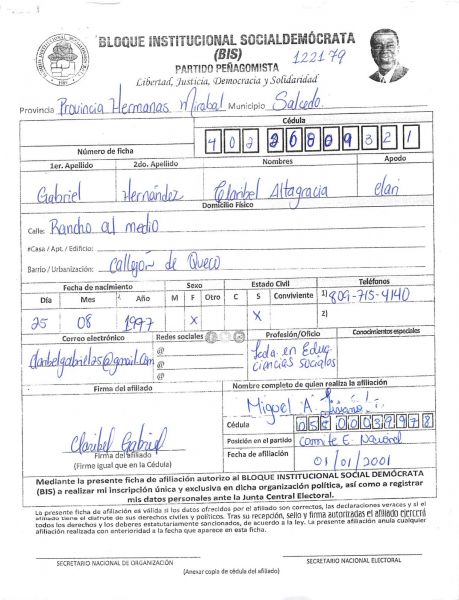 BLOQUE INSTITUCIONAL SOCIALDEMÓCRATA
(BIS)
122179
PARTIDO PEÑAGOMISTA
Libertad, Justicia, Democracia y Solidaridad
Provincia Provincia Hermanas Mirabal Municipio Salcedo.
Cédula
Número de ficha 402 2680932 1
1er. Apellido 2do. Apellido Nombres Apodo
Gabriel Hernández Claribel Altagracia clari
Domicilio Físico
Calle: Rancho al medio
#Casa / Apt. / Edificio:
Barrio / Urbanización: Callejón de Queco
Fecha de nacimiento Sexo Estado Civil Teléfonos
Día Mes Año M F Otro C S Conviviente 1) 809-715-4140
25 08 1997 X X 2)
Correo electrónico Redes sociales Profesión/Oficio Conocimientos especiales
claribelgabriel25@gmail.com @ Lcda. en Educ.
@ ciencias sociales
@
Firma del afiliado Nombre completo de quien realiza la afiliación
Miguel A.
Cédula
Claribel Gabriel Posición en el partido Comite E. Nacional
Firma del afiliado Fecha de afiliación 01/01/2001
(Firma igual que en la Cédula)
Mediante la presente ficha de afiliación autorizo al BLOQUE INSTITUCIONAL SOCIAL DEMÓCRATA
(BIS) a realizar mi inscripción única y exclusiva en dicha organización política, así como a registrar
mis datos personales ante la Junta Central Electoral.
La presente ficha de afiliación es válida si los datos ofrecidos por el afiliado son correctos, las declaraciones veraces y si el
afiliado tiene el disfrute de sus derechos civiles y políticos. Tras su recepción, sello y firma autorizadas el afiliado ejercerá
todos los derechos y los deberes estatutariamente sancionados, de acuerdo a la ley. La presente afiliación anula cualquier
afiliación realizada con anterioridad a la fecha que aparece en esta ficha.
SECRETARIO NACIONAL DE ORGANIZACIÓN SECRETARIO NACIONAL ELECTORAL
(Anexar copia de cédula del afiliado)